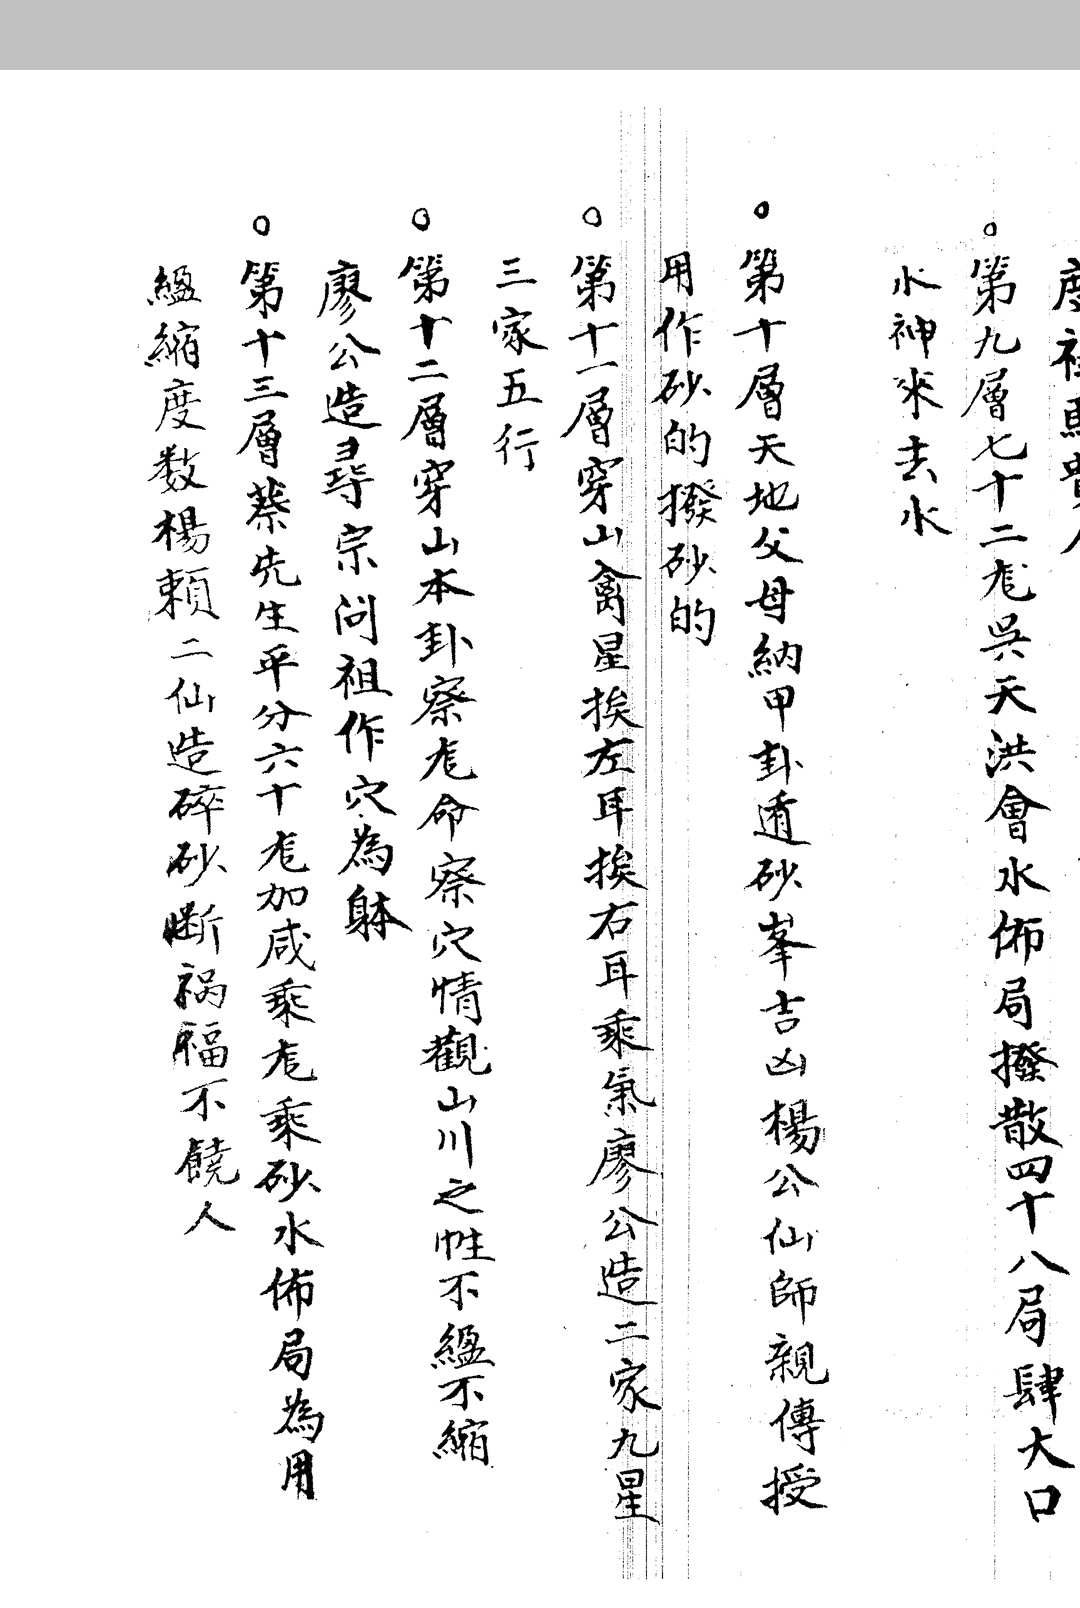 度祿馬貴人
○第九層七十二尨吳天洪會水佈局撥散四十八局肆大口
水神來去水
○第十層天地父母納甲卦遁砂峯吉凶楊公仙師親傳授
用作砂的撥砂的
○第十一層穿山禽星挨左耳挨右耳乘氣廖公造二家九星
三家五行
○第十二層穿山本卦察尨命察穴情觀山川之性不縕不縮
廖公造尋宗问祖作穴為躰
○第十三層蔡先生平分六十尨加咸乘尨乘砂水佈局為用
縕縮度数楊賴二仙造碎砂断祸福不饒人